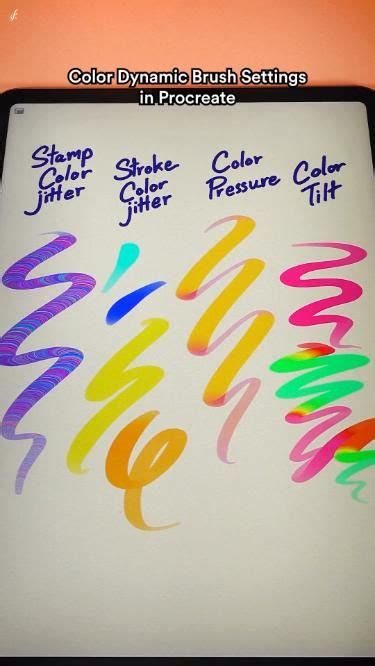 Color Dynamic Brush Settings
in Procreate
Stamp
Color
jitter
Stroke
Color
jitter
Color
Pressure
Color
Tilt